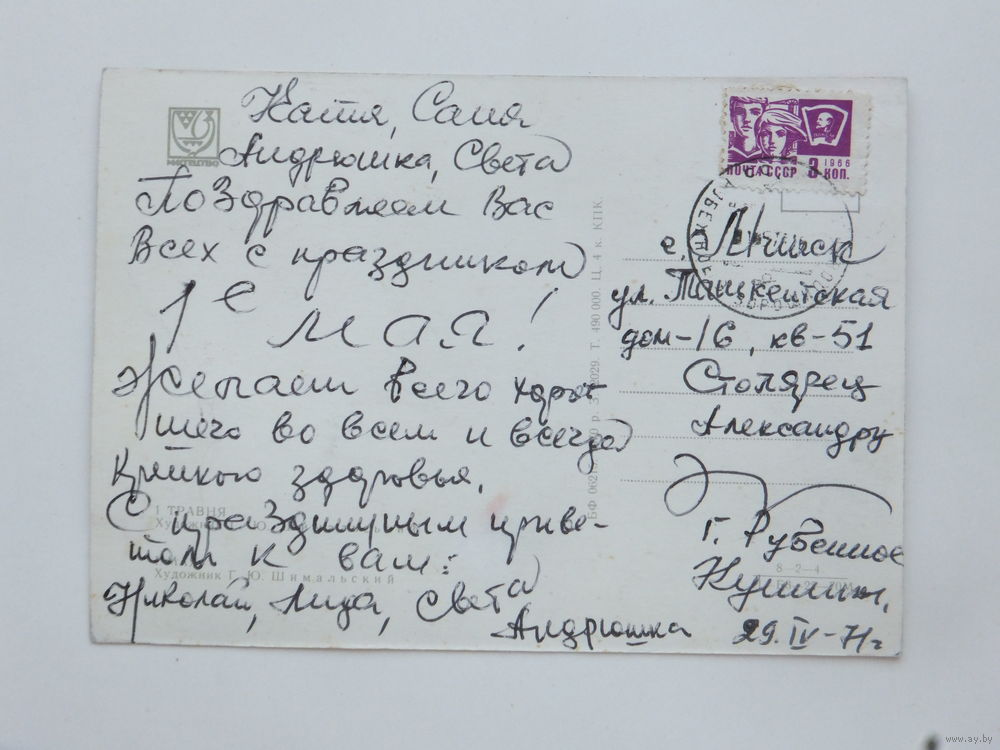 Катя, Саша
Андрюшка, Света
Поздравляем Вас
Всех с праздником
1 е мая!
Желаем всего хоро-
шего во всем и всегда
Крепкого здоровья.
С праздничным приве-
том к вам:
Николай, Лида, Света
Андрюшка
МИСТЕЦТВО
1 ТРАВНЯ
Художник Г. Ю. Шимальский
БФ 062 2029. Т. 490 000. Ц. 4 к. КПК.
ПОЧТА СССР 3 КОП.
1966
РУБЕЖНОЕ
г. Минск
ул. Ташкентская
дом-16, кв-51
Столярец
Александру
г. Рубежное
8-2-4
29.IV-71г
www.ay.by